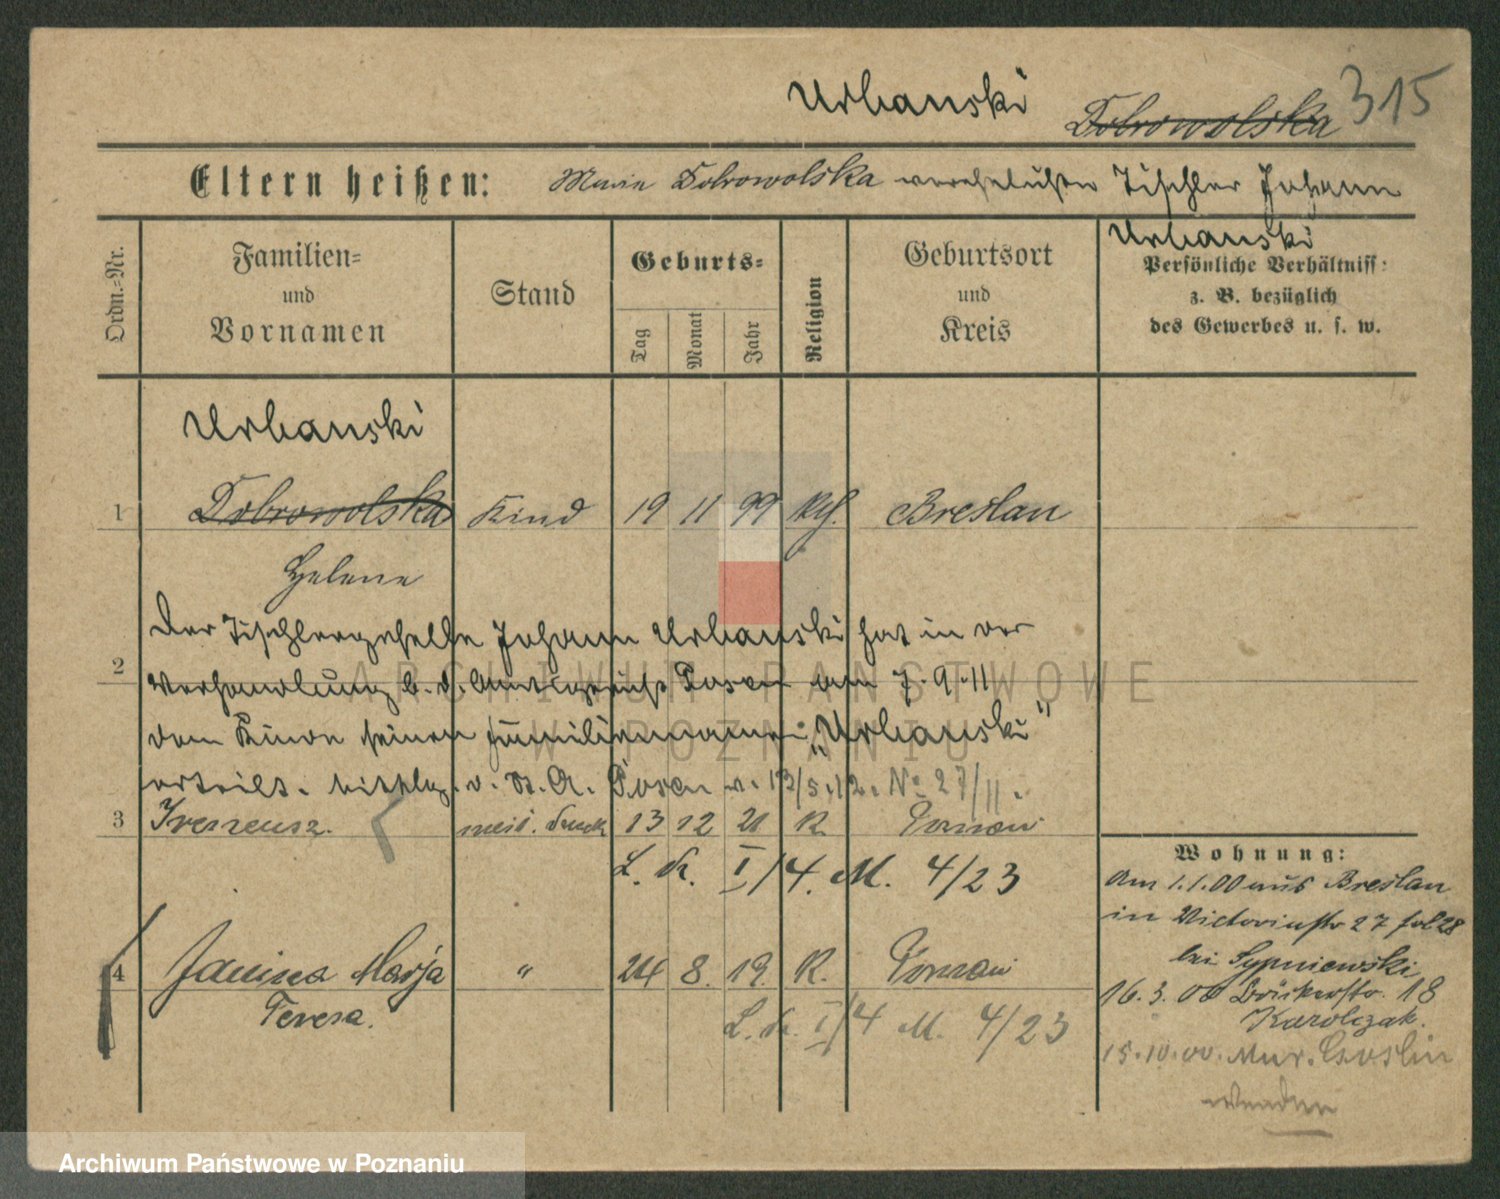 Urbanski Dobrowolska 315
Eltern heißen: Maria Dobrowolska verehelichte Tischler Johann
Urbanski
Ordn.-Nr.
Familien-
und
Vornamen
Stand
Geburts-
Tag
Monat
Jahr
Religion
Geburtsort
und
Kreis
Persönliche Verhältniss:
z. B. bezüglich
des Gewerbes u. s. w.
Urbanski
1 Dobrowolska Kind 19 11 99 kth. Breslau
Helene
Der Tischlergeselle Johann Urbanski hat in der
2
Verhandlung b. d. Amtsgericht Posen am 7.9.11
dem Kinde seinen Familiennamen „Urbanski"
erteilt. v. St. A. Posen v. 13/5.12. No 27/11.
3 Ireneusz. 13 12 21 K Poznań
L. K. I/4. M. 4/23
4 Janina Marja " 24 8. 19. K. Poznań
Teresa.
L. K. I/4 M. 4/23
Wohnung:
Am 1.1.00 aus Breslau
in Victoriastr 27
bei Sypniewski
16. 3. 00 Bäckerstr. 18
Karolczak.
15.10.00. Mur. Goslin
wenden
ARCHIWUM PAŃSTWOWE
W POZNANIU
Archiwum Państwowe w Poznaniu